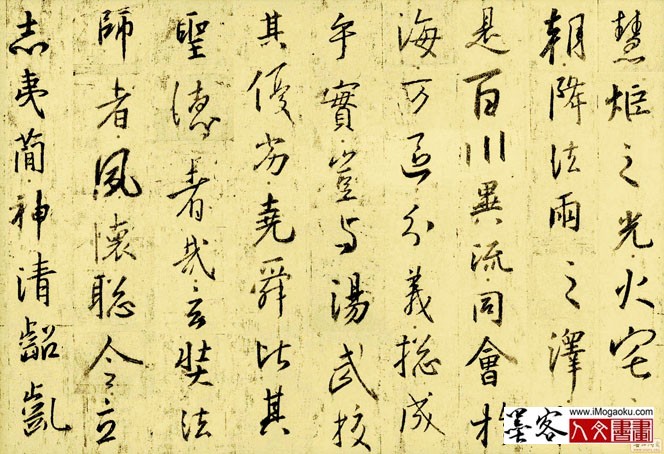 慧炬之光火宅
朝降法雨之澤
是百川異流同會於
海万區分義揔成
乎實豈与湯武挍
其優劣堯舜比其
聖德者哉玄奘法
師者夙懷聡令立
志夷簡神清齠齔
www.iMogaoku.com
墨客 人文書畫